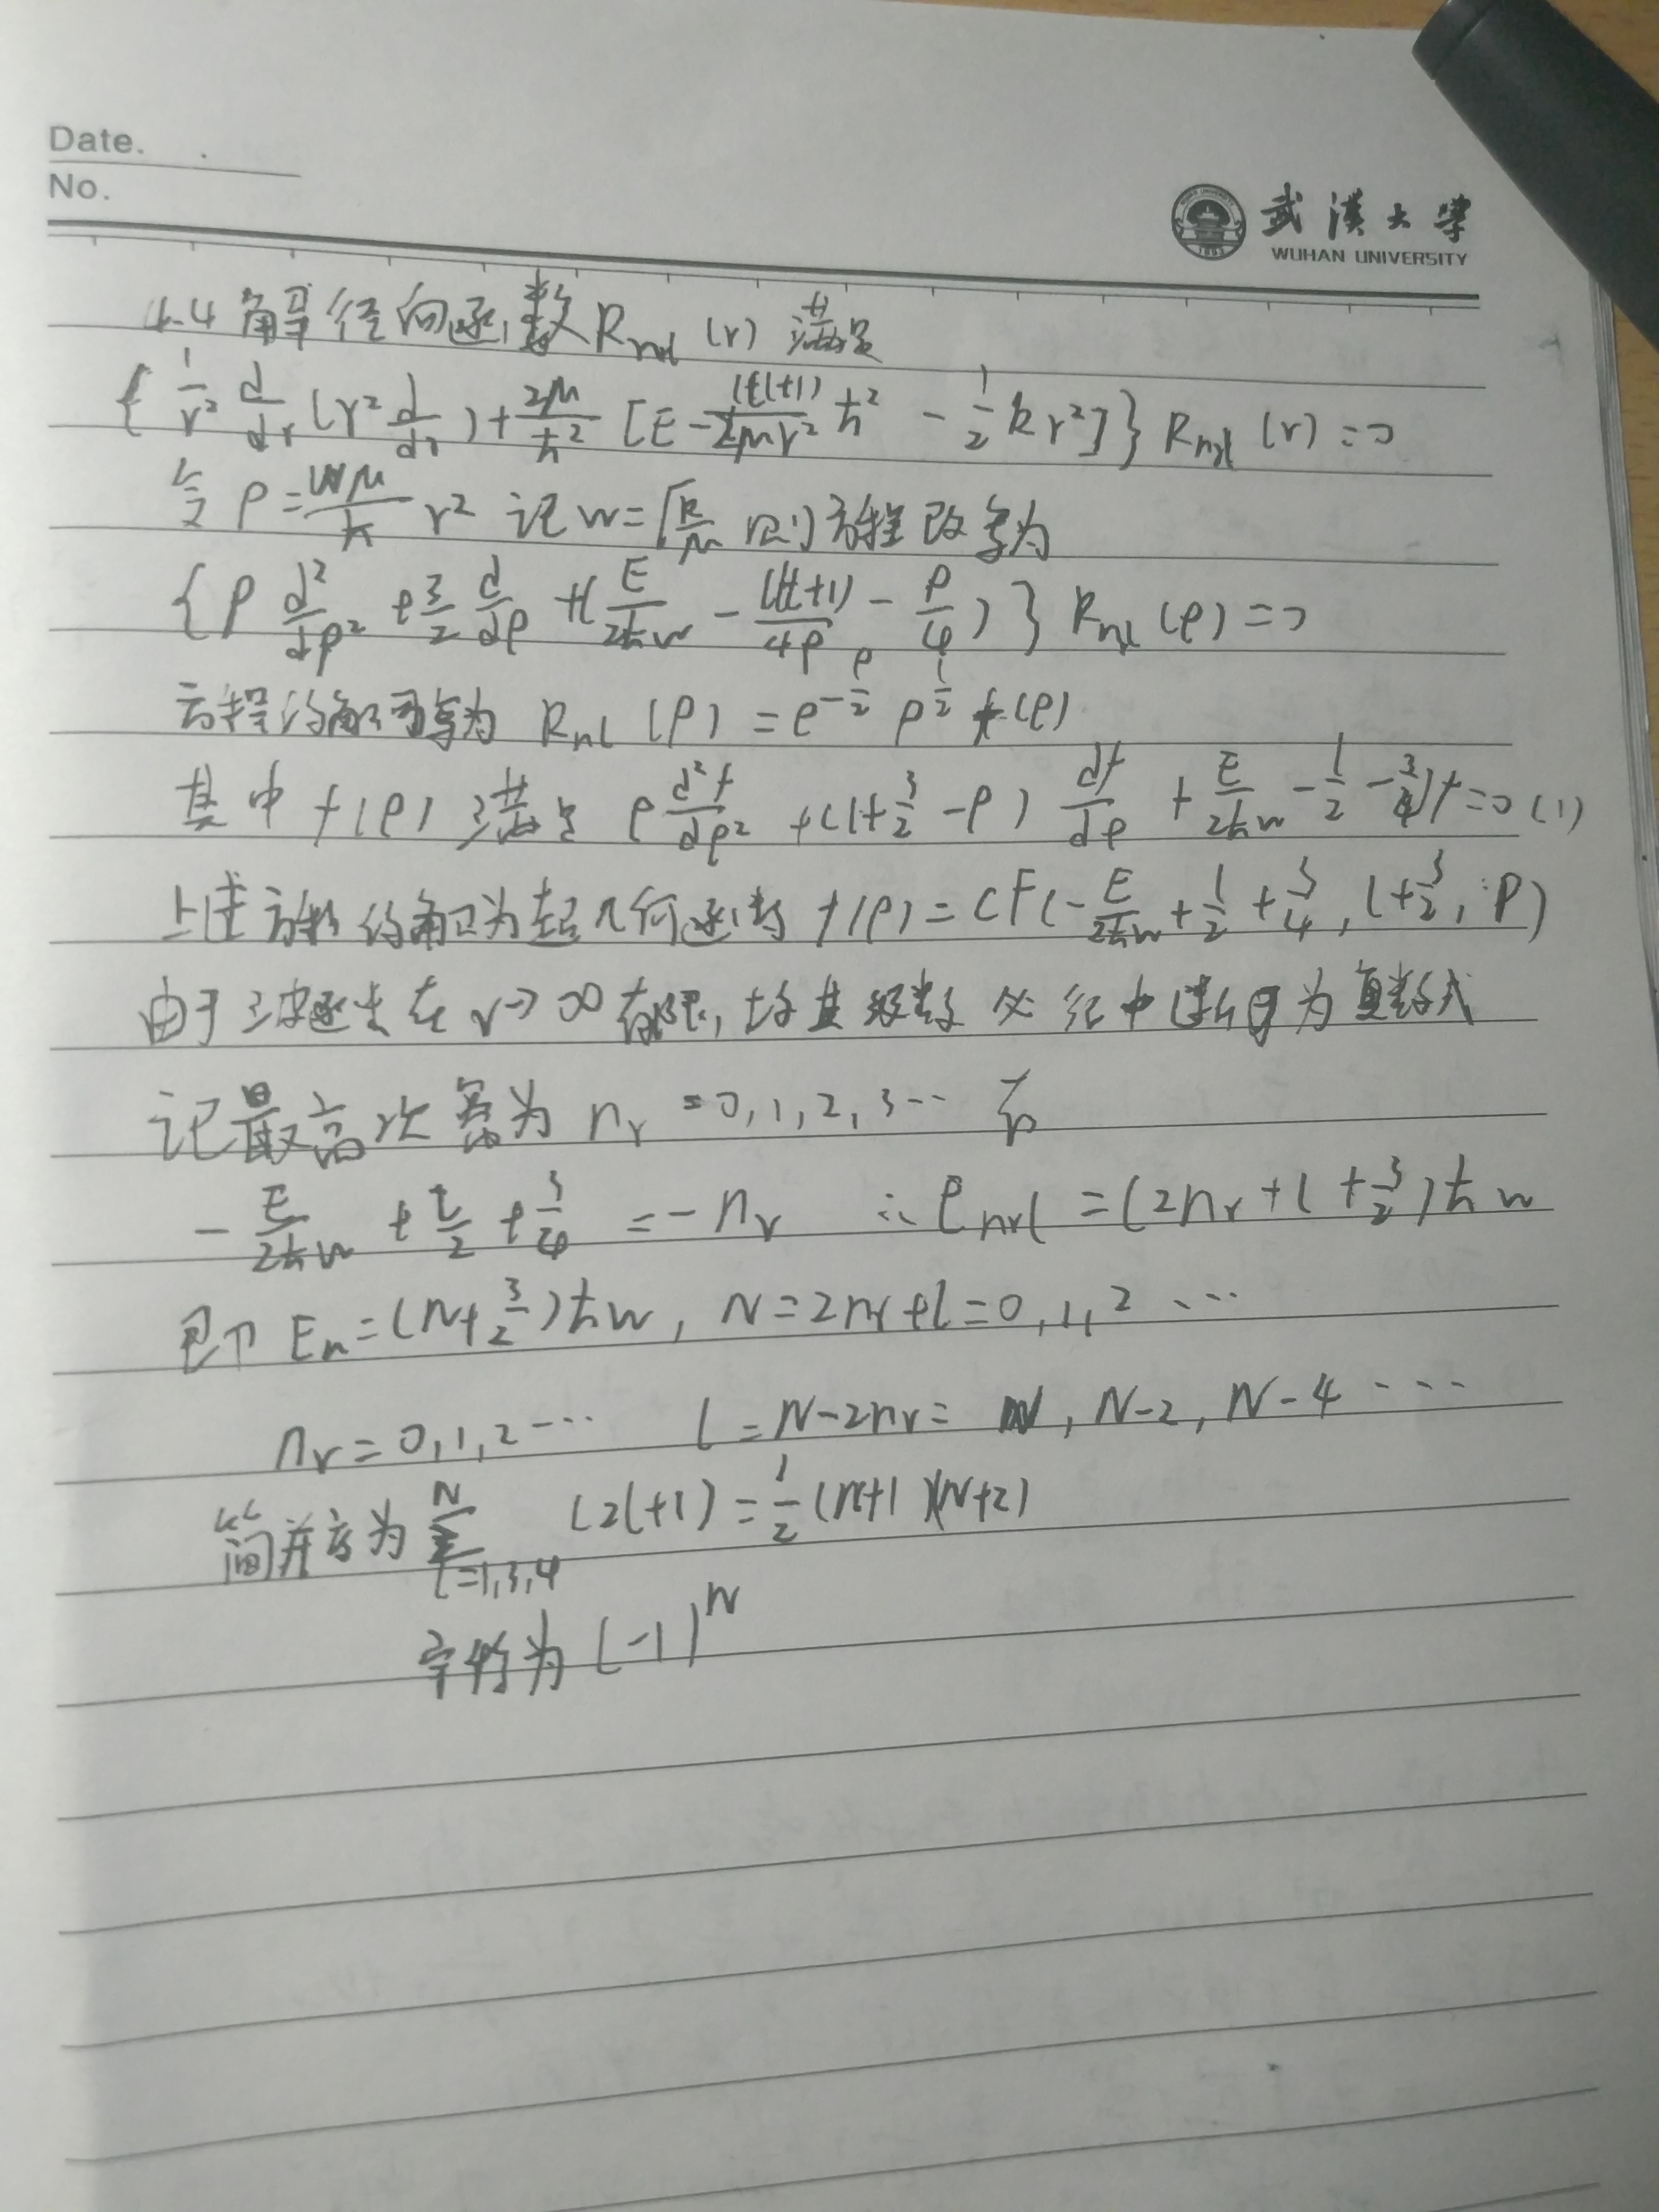 Date.
No.
武漢大學
WUHAN UNIVERSITY
4.4 解 径向函数 R_{nl}(r) 满足
{ 1/r² d/dr (r² d/dr) + 2μ/ħ² [E - l(l+1)/2μr² ħ² - 1/2 kr²] } R_{nl}(r) = 0
令 ρ = wμ/ħ r² 记 w = √(k/μ) 则方程改写为
{ ρ d²/dρ² + 3/2 d/dρ + ( E/2ħw - l(l+1)/4ρ - ρ/4 ) } R_{nl}(ρ) = 0
方程的解可写为 R_{nl}(ρ) = e^{-ρ/2} ρ^{l/2} f(ρ)
其中 f(ρ) 满足 ρ d²f/dρ² + (l + 3/2 - ρ) df/dρ + E/2ħw - l/2 - 3/4) f = 0 (1)
上述方程的解为超几何函数 f(ρ) = CF(- E/2ħw + l/2 + 3/4, l + 3/2, ρ)
由于波函数在 r→∞ 有限, 故其级数必须中断为多项式
记最高次幂为 n_r = 0, 1, 2, 3 ··· 有
- E/2ħw + l/2 + 3/4 = - n_r ∴ E_{nrl} = (2n_r + l + 3/2) ħw
即 E_n = (N + 3/2) ħw, N = 2n_r + l = 0, 1, 2 ···
n_r = 0, 1, 2 ··· l = N - 2n_r = N, N-2, N-4 ····
简并度为 Σ^N_{l=1,3,4} (2l+1) = 1/2 (N+1)(N+2)
宇称为 (-1)^N